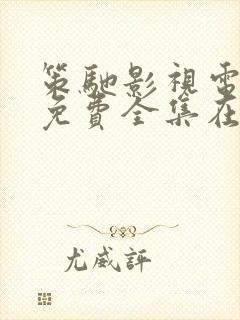 策馳影視電
免費全集在
尤威評